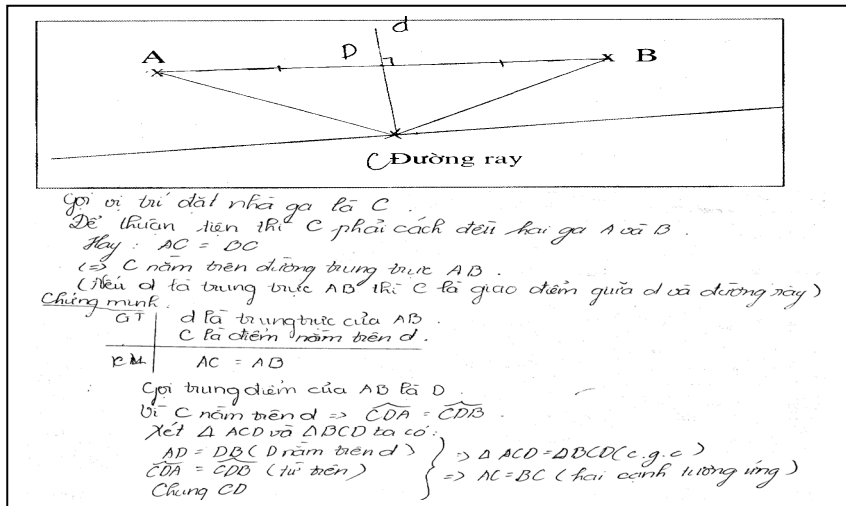 d
D
A B
C Đường ray
Gọi vị trí đặt nhà ga là C.
Để thuận tiện thì C phải cách đều hai ga A và B.
Hay : AC = BC
<=> C nằm trên đường trung trực AB.
(Nếu d là trung trực AB thì C là giao điểm giữa d và đường rày)
Chứng minh.
GT d là trung trực của AB.
C là điểm nằm trên d.
KL AC = AB
Gọi trung điểm của AB là D.
Vì C nằm trên d => CDA = CDB.
Xét Δ ACD và ΔBCD ta có:
AD = DB (D nằm trên d) => Δ ACD = ΔBCD (c.g.c)
CDA = CDB (từ trên) => AC = BC (hai cạnh tương ứng)
Chung CD